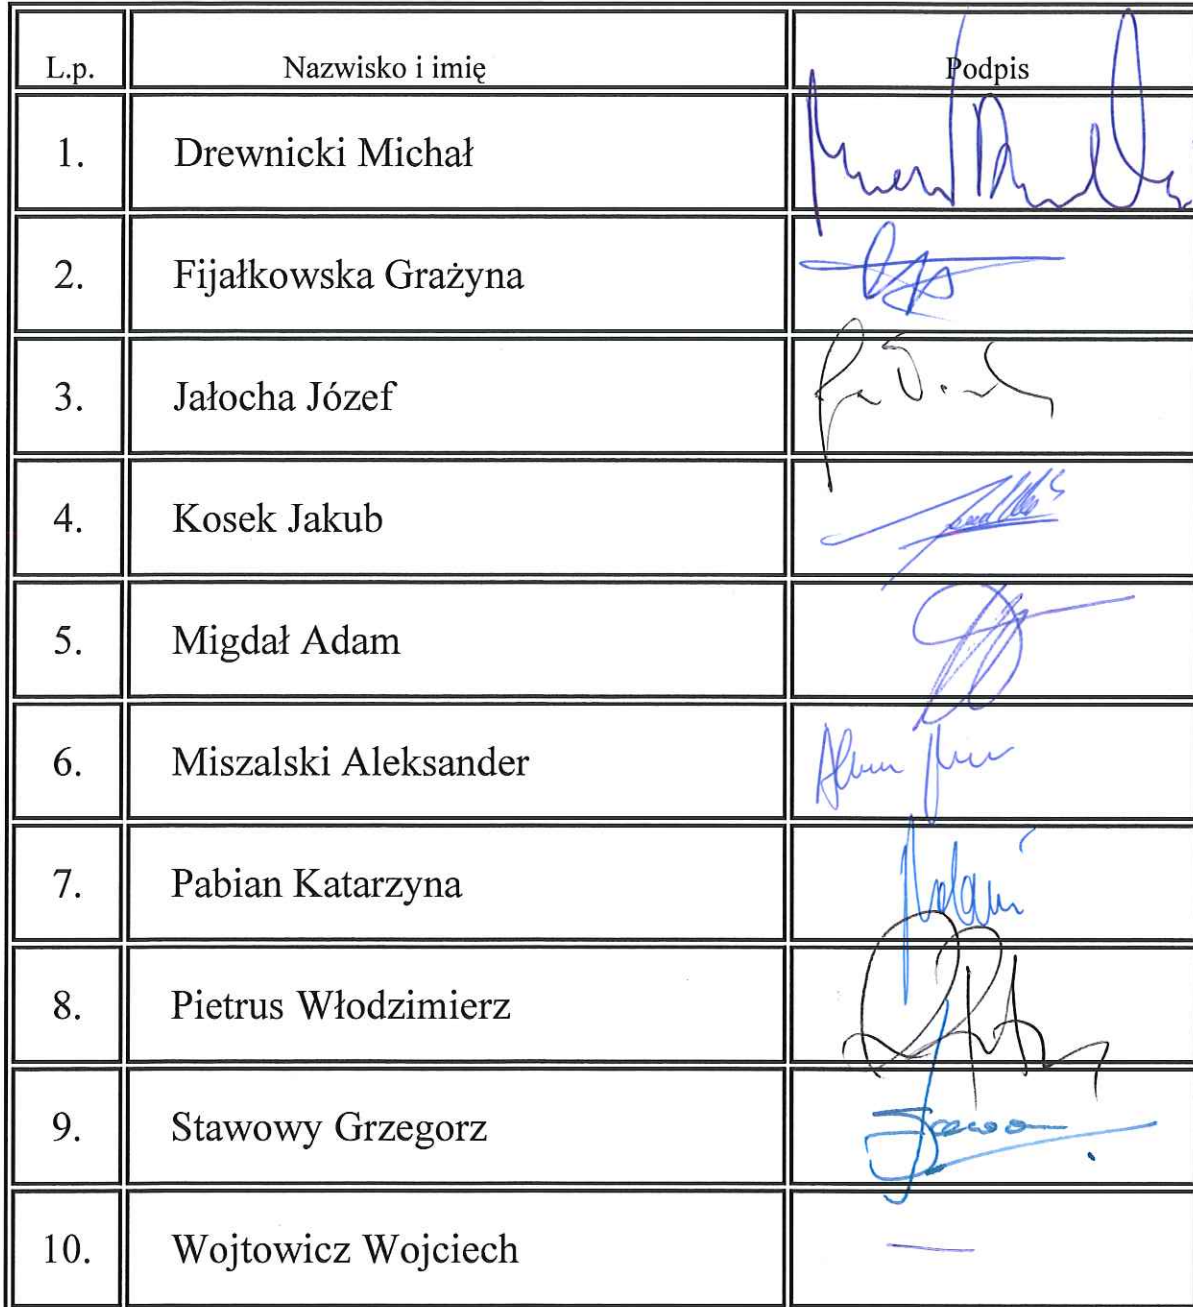 L.p. Nazwisko i imię Podpis
1. Drewnicki Michał
2. Fijałkowska Grażyna
3. Jałocha Józef
4. Kosek Jakub
5. Migdał Adam
6. Miszalski Aleksander
7. Pabian Katarzyna
8. Pietrus Włodzimierz
9. Stawowy Grzegorz
10. Wojtowicz Wojciech —